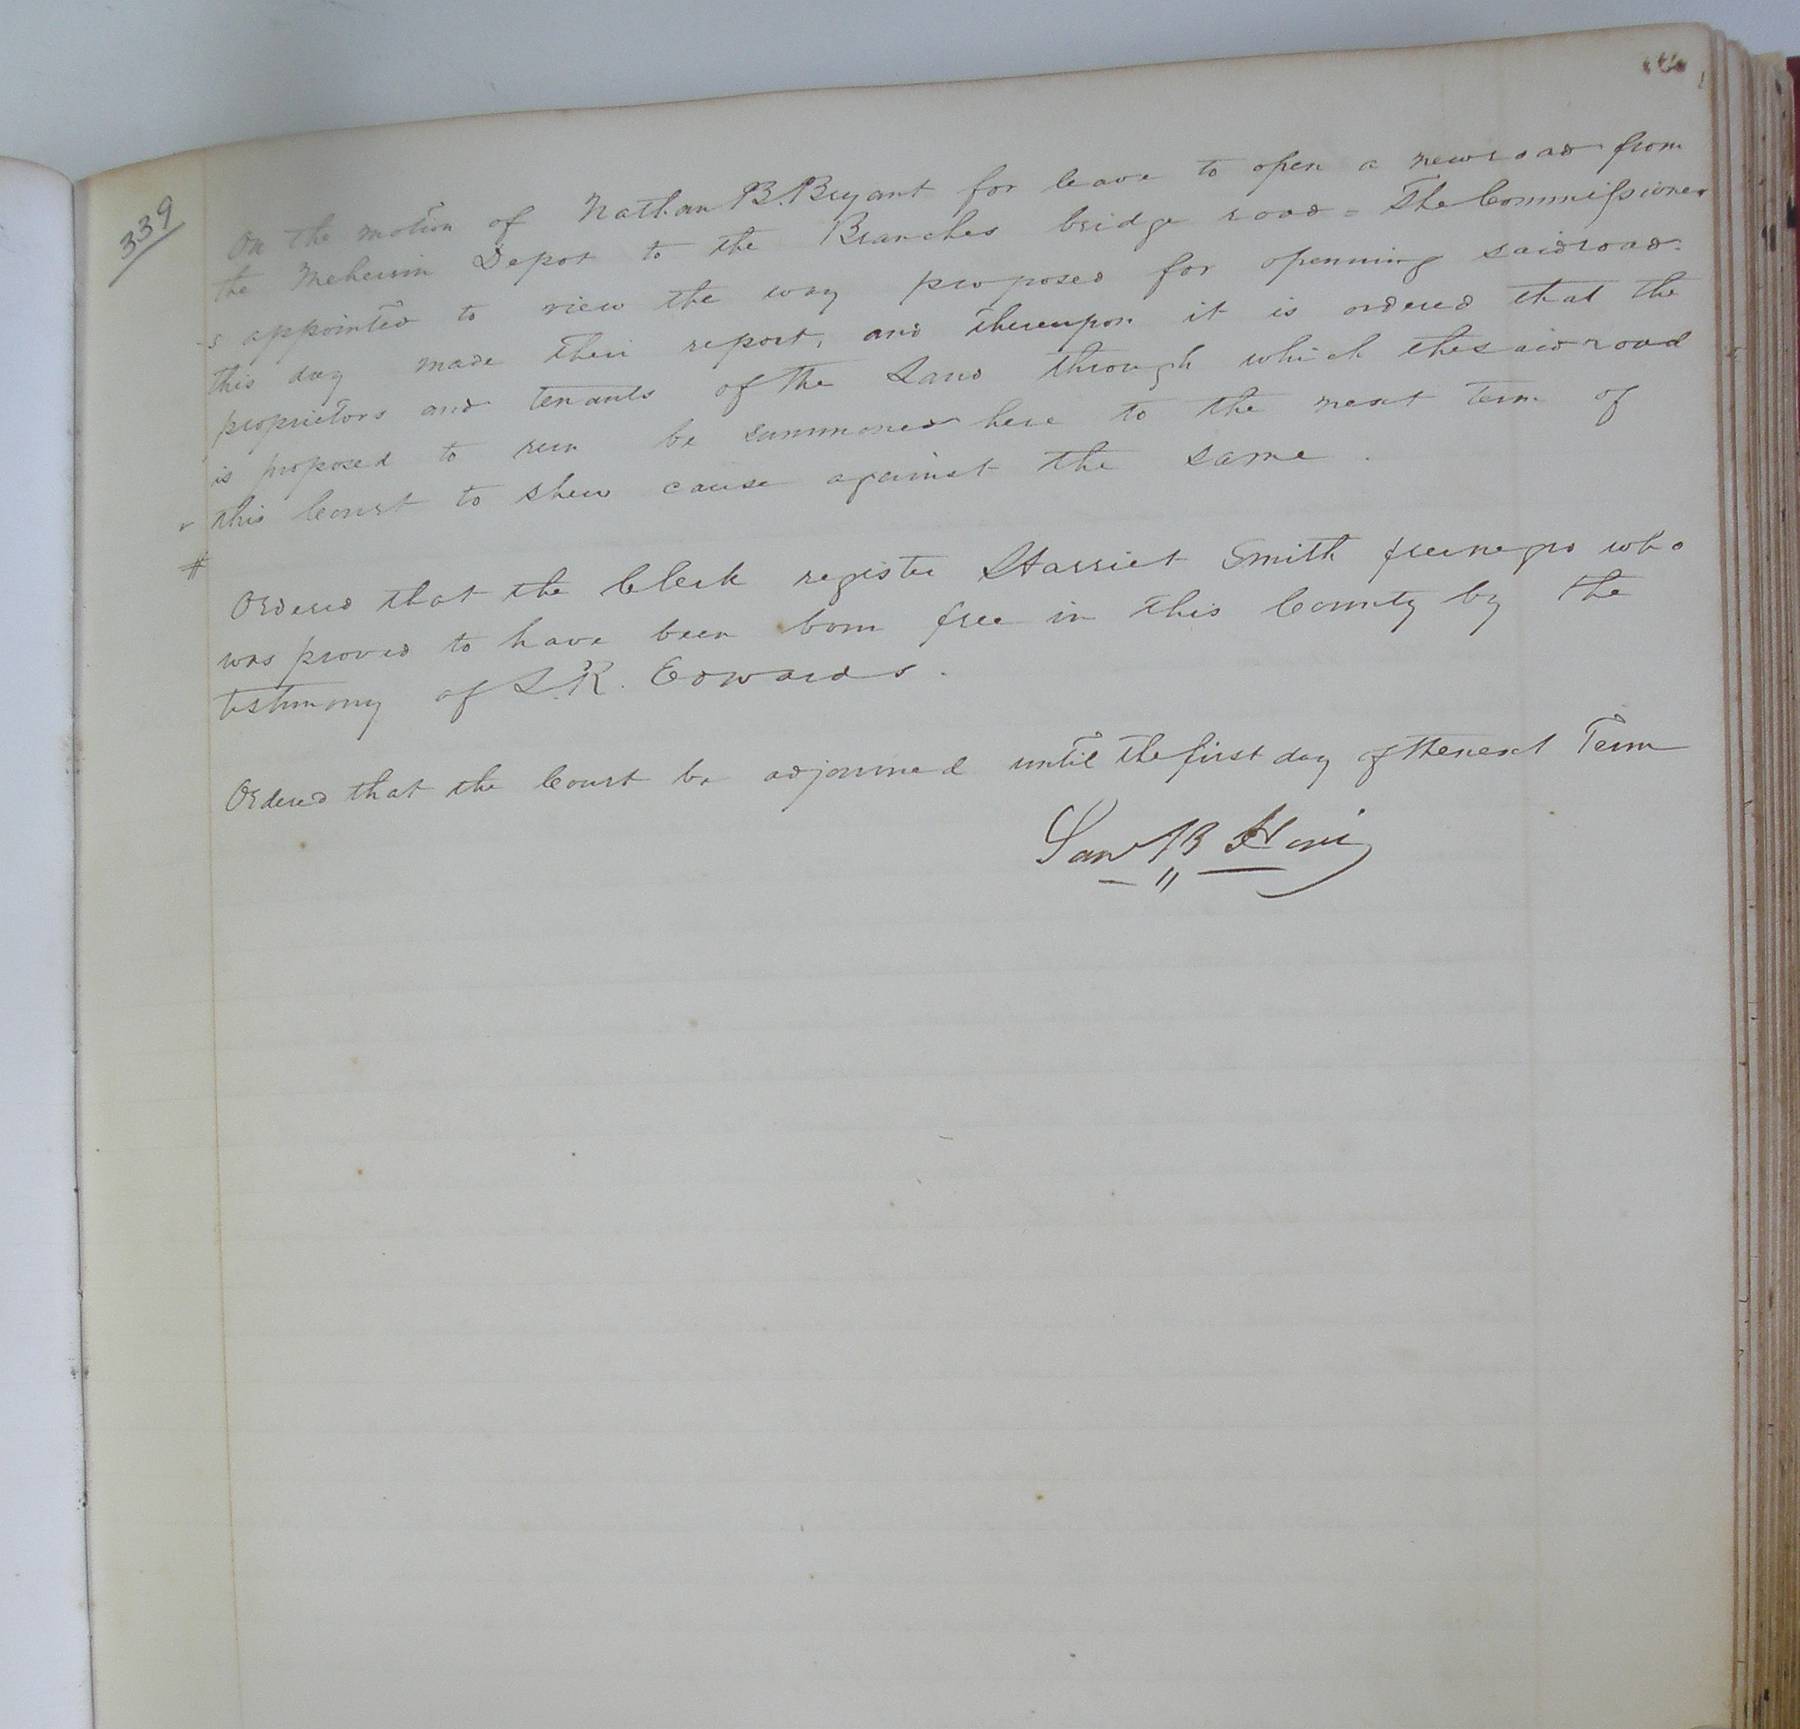 339
On the motion of Nathan B. Bryant for leave to open a new road from
the Meherrin Depot to the Branches bridge road = The Commissioner
-s appointed to view the way proposed for openning said road.
this day made their report, and thereupon it is ordered that the
proprietors and tenants of the Land through which the said road
is proposed to run be summoned here to the next term of
this Court to shew cause against the same.
Ordered that the Clerk register Harriet Smith free negro who
was proved to have been born free in this County by the
testimony of L.R. Edwards.
Ordered that the Court be adjourned until the first day of the next Term
B